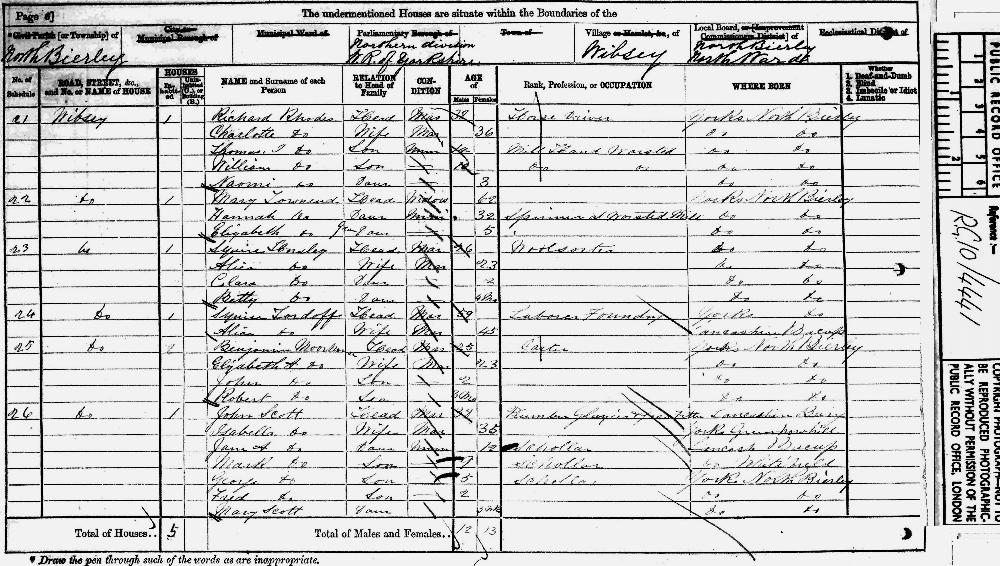 Page 6]
The undermentioned Houses are situate within the Boundaries of the
* Civil Parish [or Township] of
City or Municipal Borough of
Municipal Ward of
Parliamentary Borough of
Town of
Village or Hamlet, &c., of
Local Board, or [Improvement Commissioners District] of
Ecclesiastical District of
North Bierley
Northern division W.R. of Yorkshire
Wibsey
North Bierley North Ward
No. of Schedule
ROAD, STREET, &c., and No. or NAME of HOUSE
HOUSES
NAME and Surname of each Person
RELATION to Head of Family
CON- DITION
AGE of
Males Females
Rank, Profession, or OCCUPATION
WHERE BORN
Whether
1. Deaf-and-Dumb
2. Blind
3. Imbecile or Idiot
4. Lunatic
21 Wibsey 1 Richard Rhodes Head Mar 38 Horse Driver Yorks North Bierley
Charlotte Do Wife Mar 36 Do Do
Thomas Do Son Unm Mill Hand Worsted Do Do
William Do Son Do Do Do Do
Naomi Do Daur 3 Do Do
22 Do 1 Mary Townend Head Widow 62 Yorks North Bierley
Hannah Do Daur Unm 32 Worsted Mill Do Do
Elizabeth Do Daur 5 Do Do
23 Do 1 Squire Head Mar 26 Woolsorter Do Do
Alice Do Wife Mar 23 Do Do
Clara Do Daur 2 Do Do
Betty Do Daur Do Do
24 Do 1 Squire Tordoff Head Mar 59 Laborer Foundry Yorks Do
Alice Do Wife Mar 45 Lancashire Bacup
25 Do Benjamin Head Mar 25 Carter Yorks North Bierley
Elizabeth A Do Wife Mar 23 Do Do
John Do Son 2 Do Do
Robert Do Son Do Do
26 Do 1 John Scott Head Mar Plumber Glazier Lancashire Bury
Isabella Do Wife Mar 35 Yorks
Jane A Do Daur Unm 12 Schollar Lancash Bacup
Mark Do Son 7 Schollar Do
George Do Son 5 Schollar Yorks North Bierley
Fred Do Son 2 Do Do
Mary Scott Daur Do Do
Total of Houses.. 5 Total of Males and Females.. 12 13
* Draw the pen through such of the words as are inappropriate.
PUBLIC RECORD OFFICE
1 2 3 4 5 6
1 2
Reference :-
RG10/4441
COPYRIGHT PHOTOGRAPH—NOT TO BE REPRODUCED PHOTOGRAPHIC- ALLY WITHOUT PERMISSION OF THE PUBLIC RECORD OFFICE, LONDON